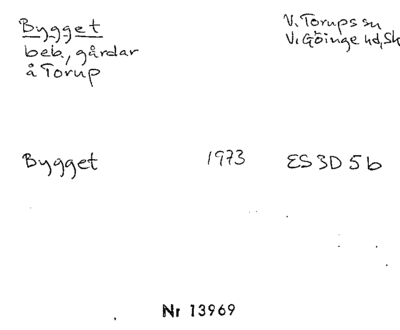 Bygget
beb., gårdar
å Torup
V. Torups sn
V. Göinge hd, Sk
Bygget 1973 ES 3D 5b
Nr 13969